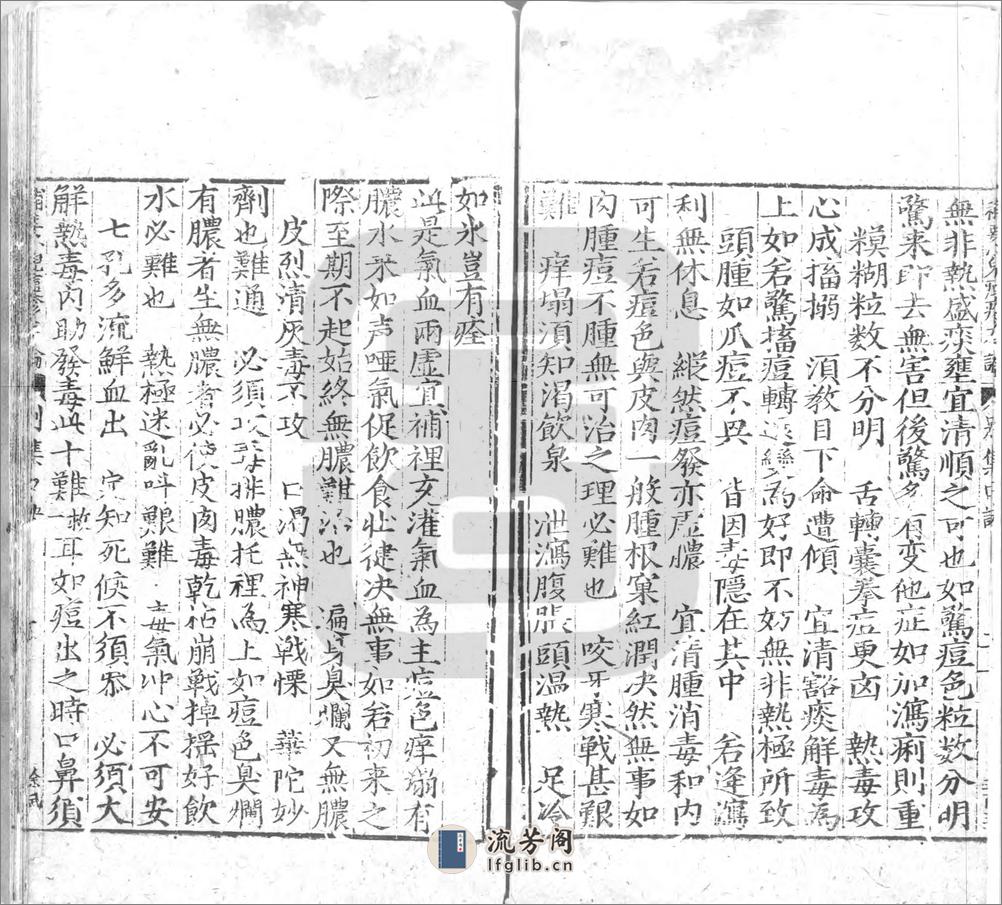 無非熱盛痰壅宜清順之可也如驚痘色粒數分明
驚來即去無害但後驚多有变他症如加瀉痢則重
糢糊粒数不分明 舌轉囊拳症更凶 熱毒攻
心成搐搦 須教目下命遭傾 宜清豁痰解毒為
上如若驚搐痘轉 為好即不妨無非熱極所致
頭腫如瓜痘不異 皆因毒隱在其中 若逢瀉
利無休息 縱然痘發亦虛膿 宜清腫消毒和內
可生若痘色與皮肉一般腫根窠紅潤决然無事如
肉腫痘不腫無可治之理必難也 咬牙寒戰甚艱
難 痒塌須知渴飲泉 泄瀉腹脹頭温熱 足冷
如氷豈有痊
此是氣血兩虛宜補裡亥灌氣血為主痘色痒塌有
膿水來如声啞氣促飲食壮健决無事如若初来之
際至期不起始終無膿難治也 遍身臭爛又無膿
皮烈清灰毒不攻 口渴無神寒戰慄 華陀妙
劑也難通 必須 排膿托裡為上如痘色臭爛
有膿者生無膿者必 皮肉毒乾枯崩戰掉摇好飲
水必難也 熱極迷亂叫艱難 毒氣冲心不可安
七孔多流鮮血出 定知死候不須忝 必須大
解熱毒内助發毒此十難一救耳如痘出之時口鼻須
流芳阁
lfglib.cn